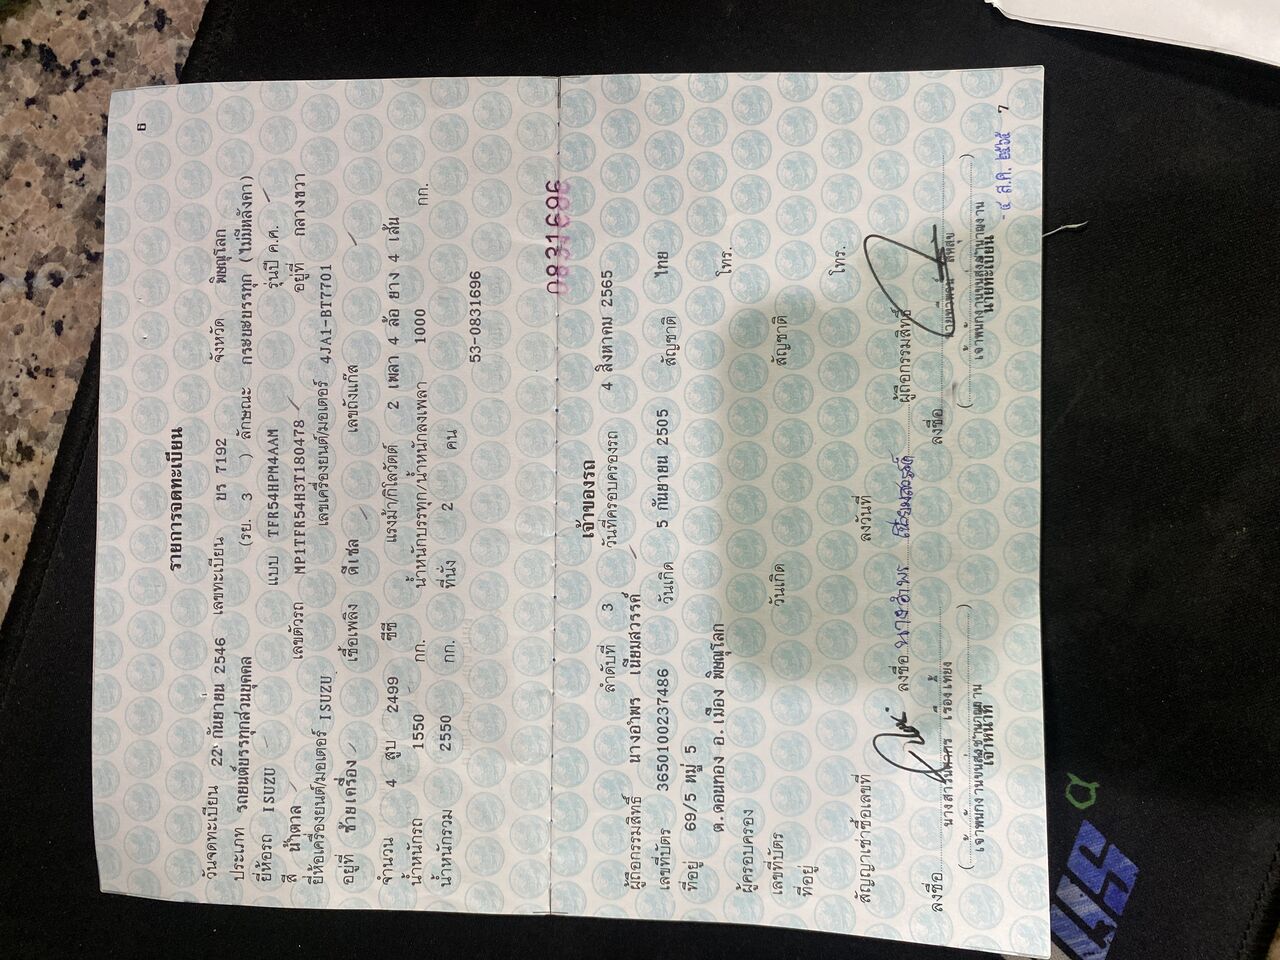 6
รายการจดทะเบียน
วันจดทะเบียน 22 กันยายน 2546 เลขทะเบียน บร 7192 จังหวัด พิษณุโลก
ประเภท รถยนต์บรรทุกส่วนบุคคล (รย. 3 ) ลักษณะ กระบะบรรทุก (ไม่มีหลังคา)
ยี่ห้อรถ ISUZU แบบ TFR54HPM4AAM รุ่นปี ค.ศ.
สี น้ำตาล เลขตัวรถ MP1TFR54H3T180478 อยู่ที่ กลางขวา
ยี่ห้อเครื่องยนต์/มอเตอร์ ISUZU เลขเครื่องยนต์/มอเตอร์ 4JA1-BT7701
อยู่ที่ ซ้ายเครื่อง เชื้อเพลิง ดีเซล เลขถังแก๊ส
จำนวน 4 สูบ 2499 ซีซี แรงม้า/กิโลวัตต์ 2 เพลา 4 ล้อ ยาง 4 เส้น
น้ำหนักรถ 1550 กก. น้ำหนักบรรทุก/น้ำหนักลงเพลา 1000 กก.
น้ำหนักรวม 2550 กก. ที่นั่ง 2 คน
53-0831696
0831696
เจ้าของรถ
ลำดับที่ 3 วันที่ครอบครองรถ 4 สิงหาคม 2565
ผู้ถือกรรมสิทธิ์ นางอำพร เนียมสวรรค์
เลขที่บัตร 3650100237486 วันเกิด 5 กันยายน 2505 สัญชาติ ไทย
ที่อยู่ 69/5 หมู่ 5
ต.ดอนทอง อ.เมือง พิษณุโลก โทร.
ผู้ครอบครอง
เลขที่บัตร วันเกิด สัญชาติ
ที่อยู่ โทร.
สัญญาเช่าซื้อเลขที่ ลงวันที่
ลงชื่อ นางอำพร เนียมสวรรค์ ผู้ถือกรรมสิทธิ์
ลงชื่อ ลงชื่อ
( ) ( )
เจ้าพนักงานขนส่งชำนาญงาน เจ้าพนักงานขนส่งชำนาญงาน
เจ้าหน้าที่ นายทะเบียน
- ๔ ส.ค. ๒๕๖๕
7